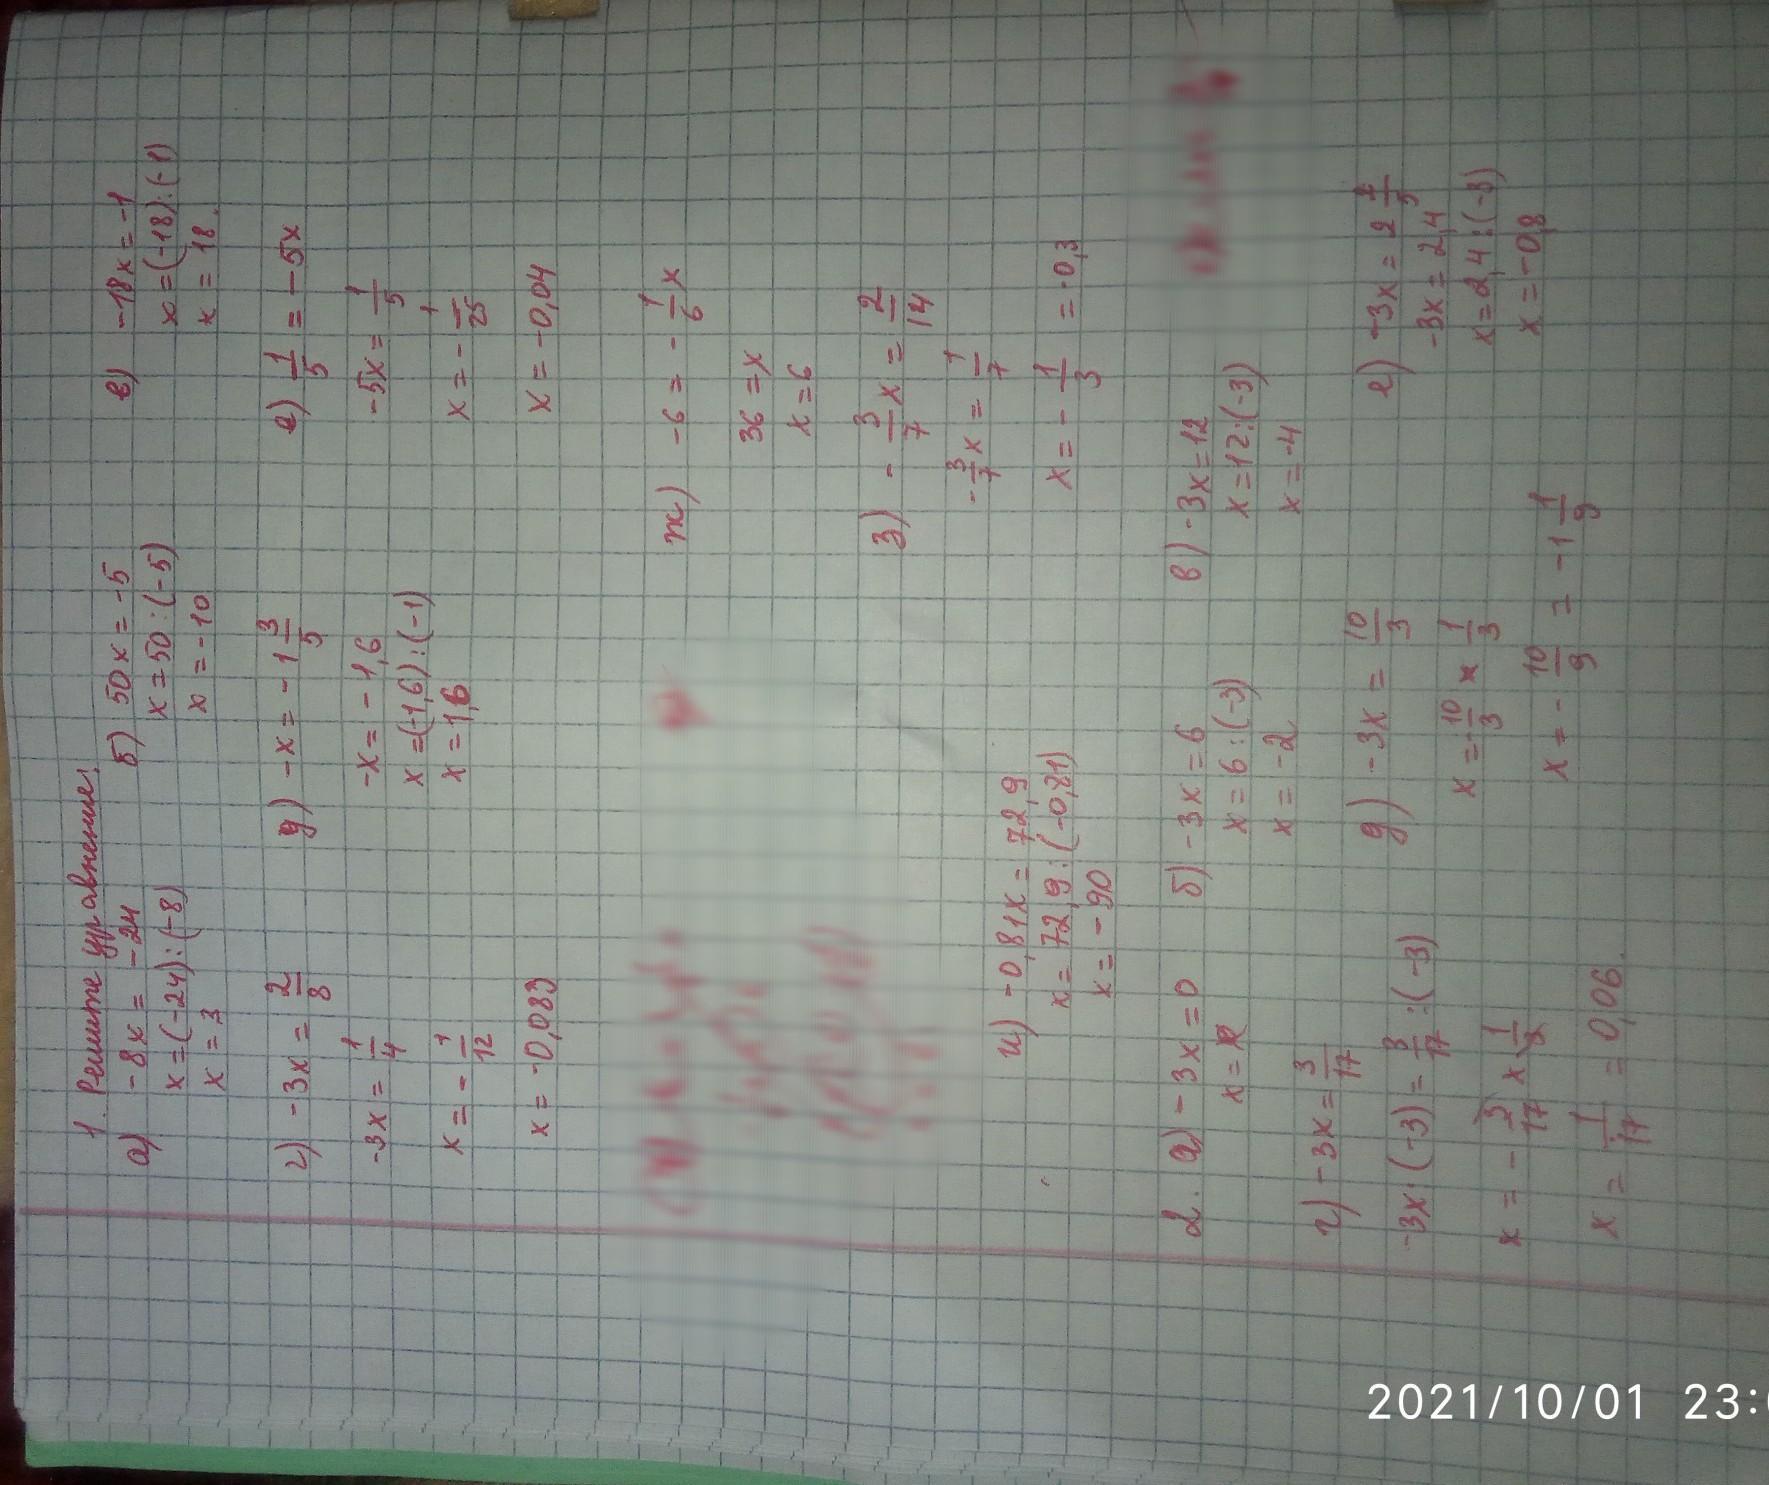 1. Решите уравнение.
а) -8x = -24
x=(-24):(-8)
x = 3
б) 50x = -5
x=50:(-5)
x = -10
в) -18x = -1
x=(-18):(-1)
x = 18.
г) -3x = 2/8
-3x = 1/4
x = - 1/12
x = -0,083
д) -x = -1 3/5
-x = -1,6
x=(-1,6):(-1)
x = 1,6
е) 1/5 = -5x
-5x = 1/5
x = - 1/25
x = -0,04
ж) -6 = - 1/6 x
36 = x
x = 6
з) - 3/7 x = 2/14
- 3/7 x = 1/7
x = - 1/3 = -0,3
и) -0,81x = 72,9
x = 72,9:(-0,81)
x = -90
2. а) -3x = 0
x =
б) -3x = 6
x = 6:(-3)
x = -2
в) -3x = 12
x = 12:(-3)
x = -4
г) -3x = 3/17
-3x:(-3) = 3/17 :(-3)
x = - 3/17 x 1/3
x = 1/17 = 0,06.
д) -3x = 10/3
x = - 10/3 x 1/3
x = - 10/9 = -1 1/9
е) -3x = 2 2/5
-3x = 2,4
x = 2,4:(-3)
x = -0,8
2021/10/01 23: